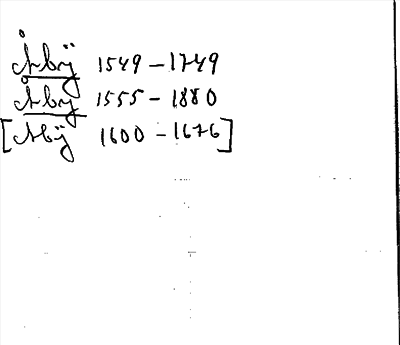 Åbÿ 1549 – 1749
Åbÿ 1555 – 1880
[Abÿ 1600 – 1676]